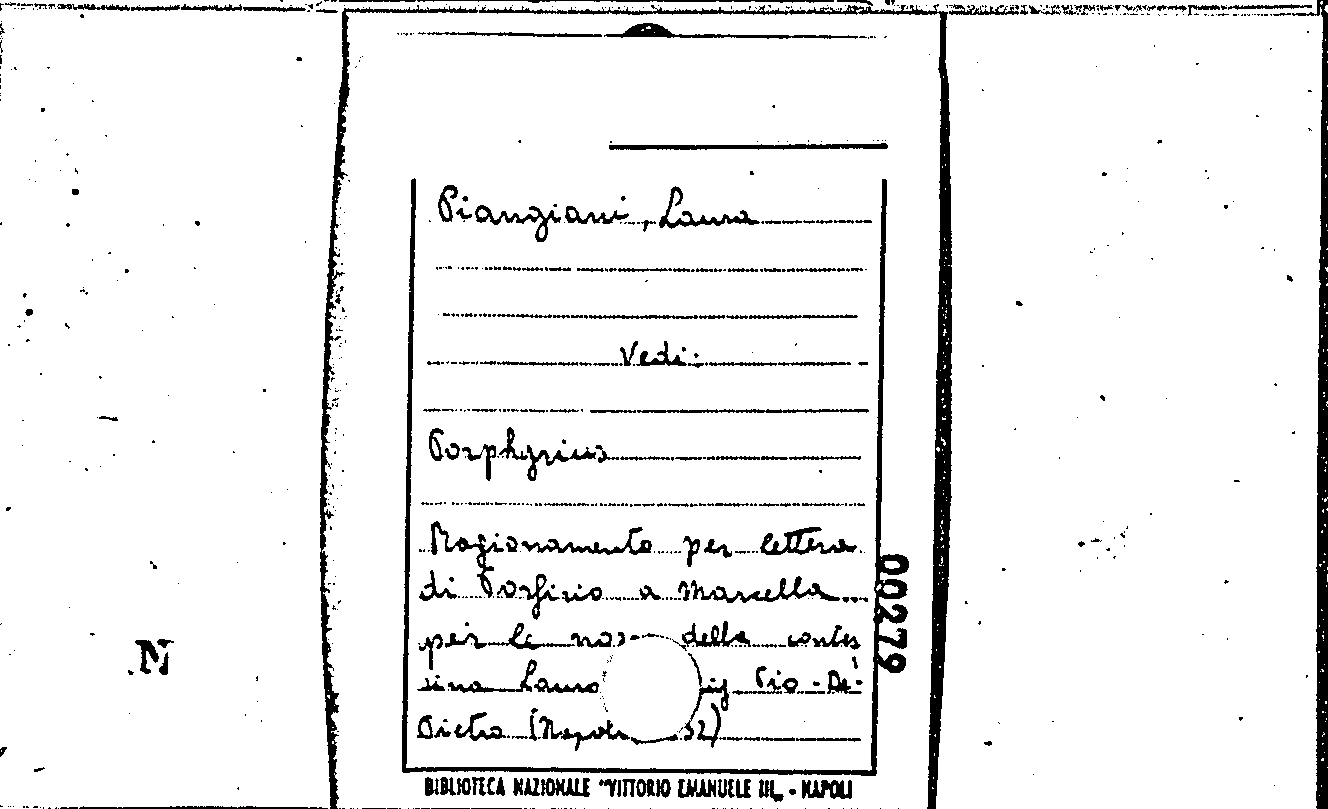 Piangiani, Laura
Vedi:
Porphyrius
Ragionamento per lettera
di Porfirio a Marcella...
per le della contes
sina Pio-De-
Pietra
BIBLIOTECA NAZIONALE "VITTORIO EMANUELE III„ - NAPOLI
00279
N